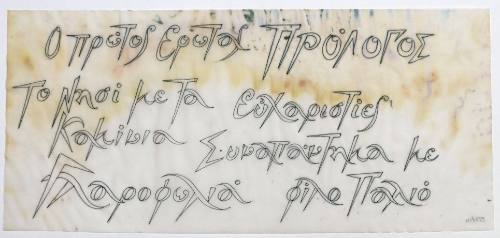 Ο πρῶτος Ερωτος ΠΡΟΛΟΓΟΣ
Το Νησί με τα Ευχαριστίες
Καμίνια Συναπάντημα με
Γλαροφωλιά φίλο Παλιό